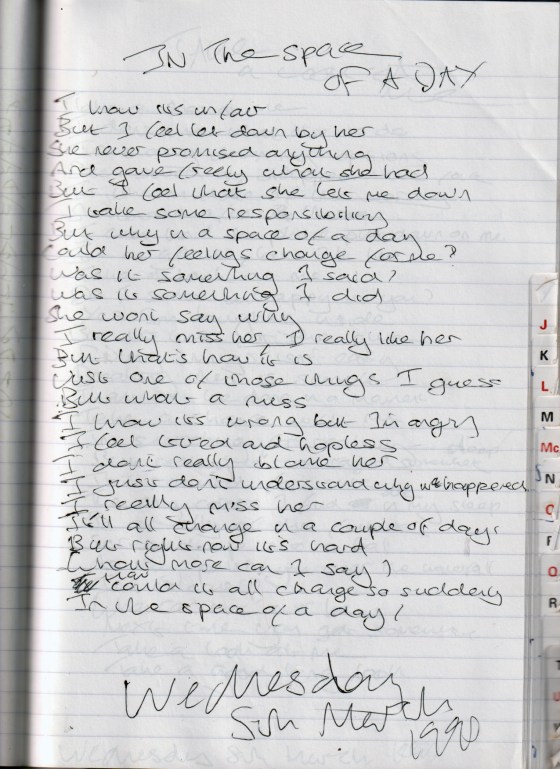 IN The space
OF A DAY
I know its unfair
But I feel let down by her
She never promised anything
And gave freely what she had
But I feel that she let me down
I take some responsibility
But why in a space of a day
Could her feelings change for me?
Was it something I said?
Was it something I did
She wont say why
I really miss her, I really like her
But that's how it is
Just one of those things I guess
But what a mess
I know its wrong but I'm angry
I feel tired and hopless
I don't really blame her
I just don't understand why it happened
I really miss her
It'll all change in a couple of days
But right now it's hard
What more can I say?
How could it all change so suddenly
In the space of a day?
Wednesday
5th March
1990
J
K
L
M
Mc
N
F
Q
R